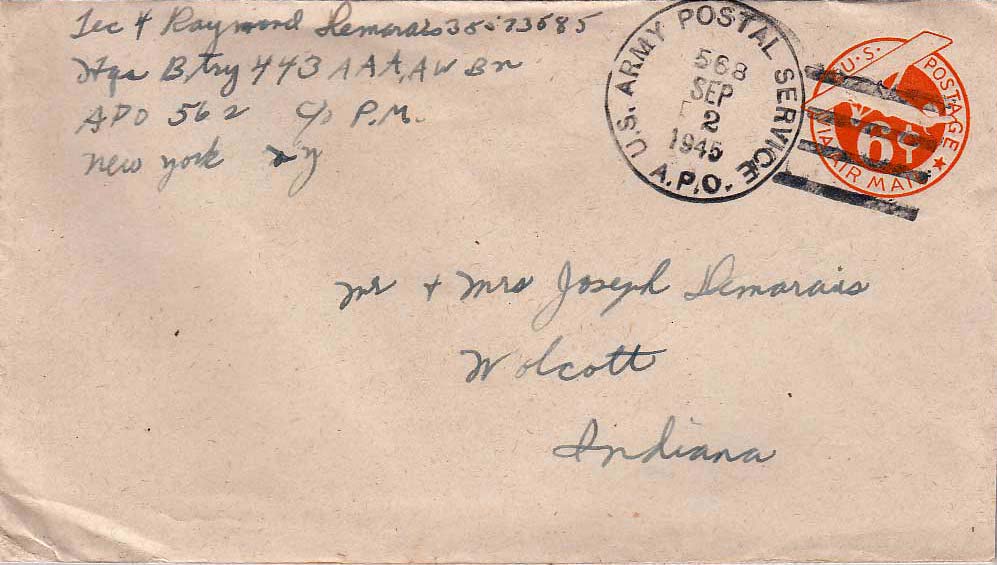 Tec 4 Raymond Demarais 35573585
Hqs Btry 443 AAA, AW Bn
APO 562 c/o P.M.
New York NY
U.S. ARMY POSTAL SERVICE
568
SEP
2
1945
A.P.O.
U.S. POSTAGE
6¢
VIA AIR MAIL
Mr + Mrs Joseph Demarais
Wolcott
Indiana